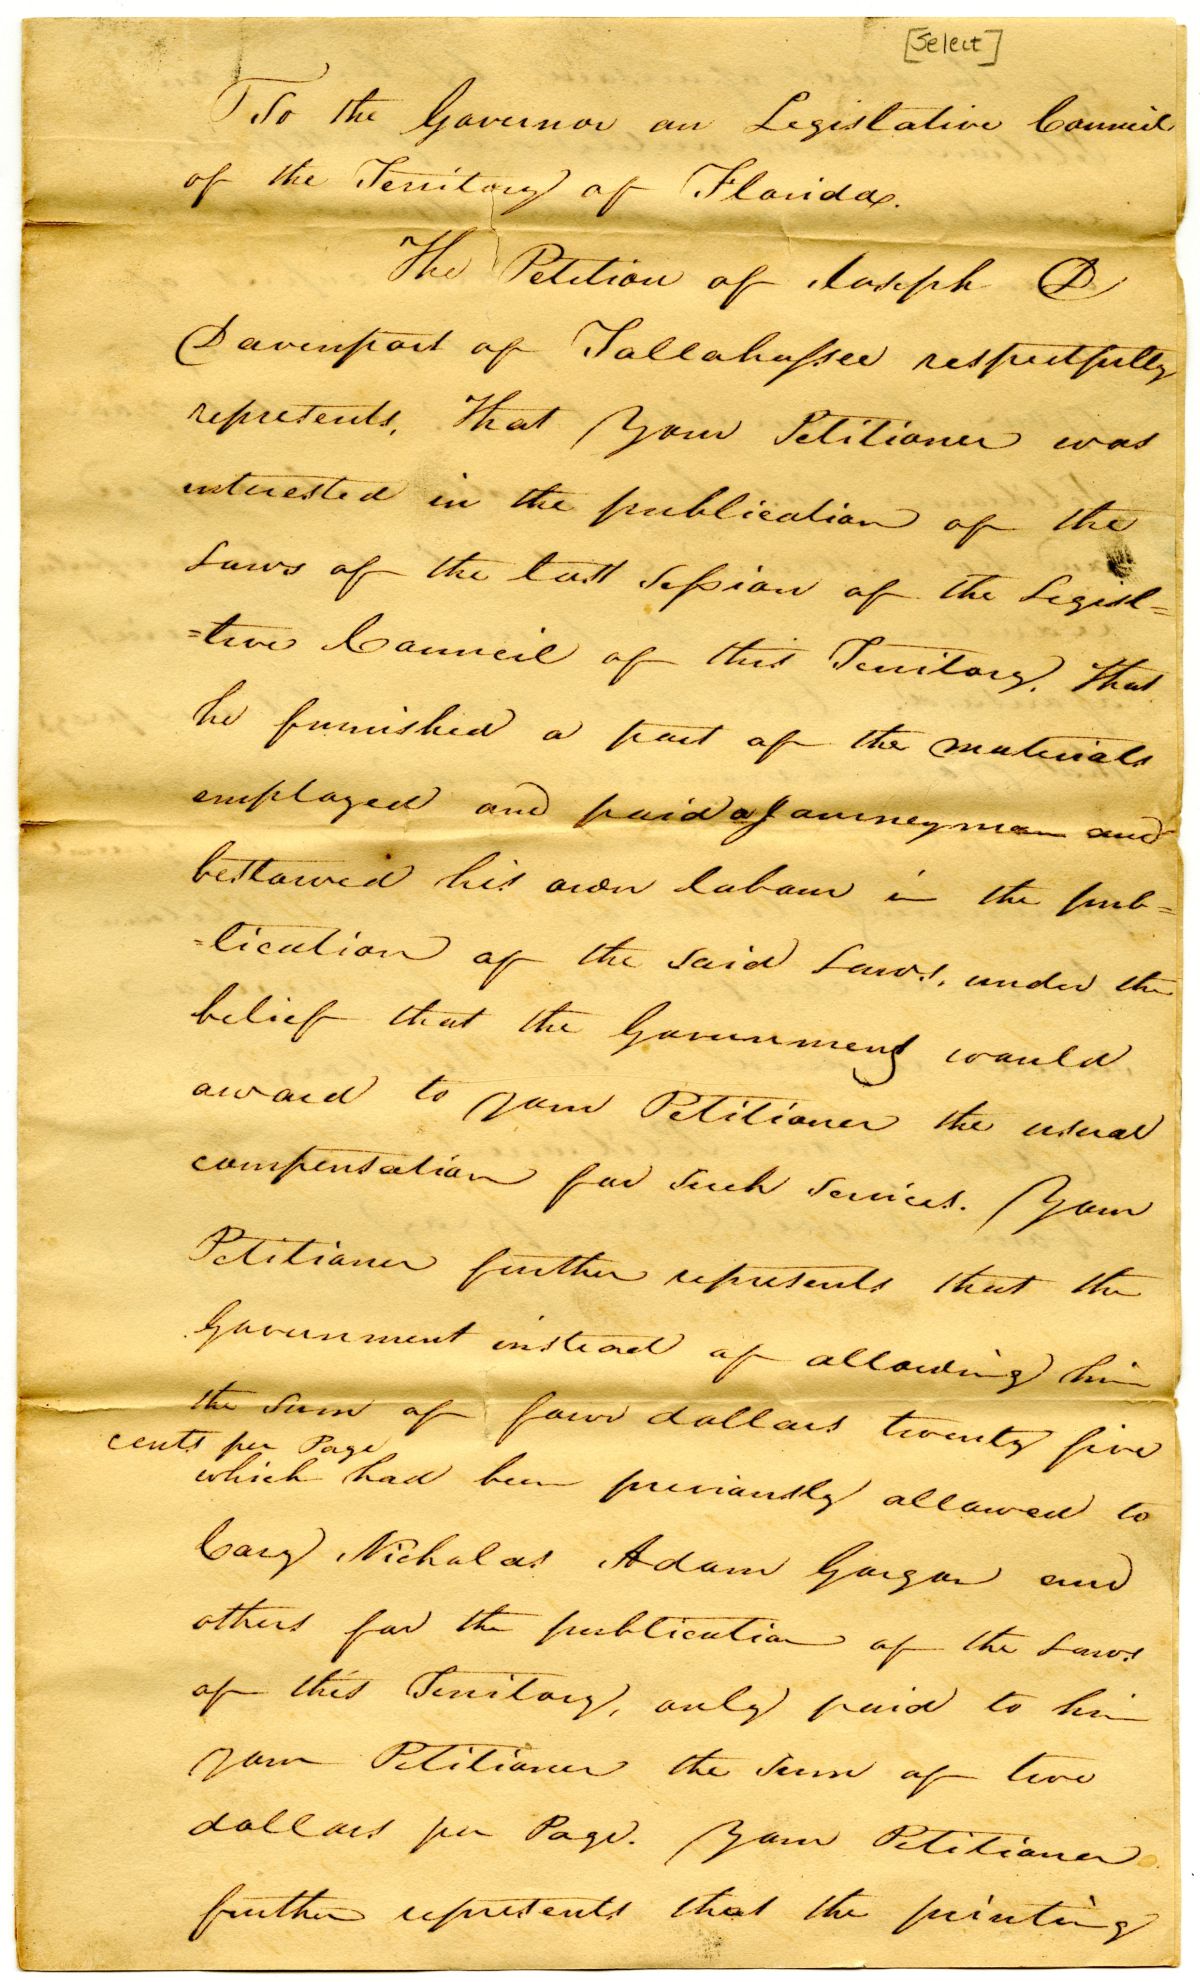 [Select]
To the Governor an Legislative Council
of the Territory of Florida.
The Petition of Joseph D
Davenport of Tallahassee respectfully
represents, That your Petitioner was
interested in the publication of the
Laws of the last Session of the Legisl=
=tive Council of this Territory. That
he furnished a part of the materials
employed and paid a Journeyman and
bestowed his own labour in the pub=
=lication of the said Laws, under the
belief that the Government would
award to your Petitioner the usual
compensation for such services. Your
Petitioner further represents that the
Government instead of allowing him
the sum of four dollars twenty five
cents per Page
which had been previously allowed to
Cary Nicholas Adam Gorgon and
others for the publication of the Laws
of this Territory, only paid to him
your Petitioner the sum of two
dollars per Page. Your Petitioner
further represents that the printing